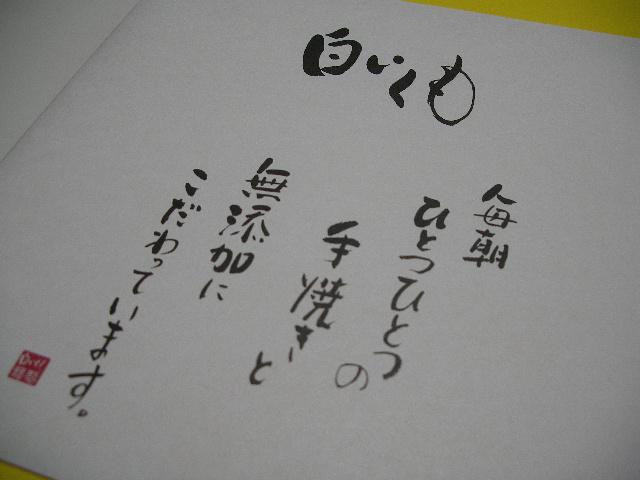 白いくも
毎朝
ひとつひとつの
手焼きと
無添加に
こだわっています。